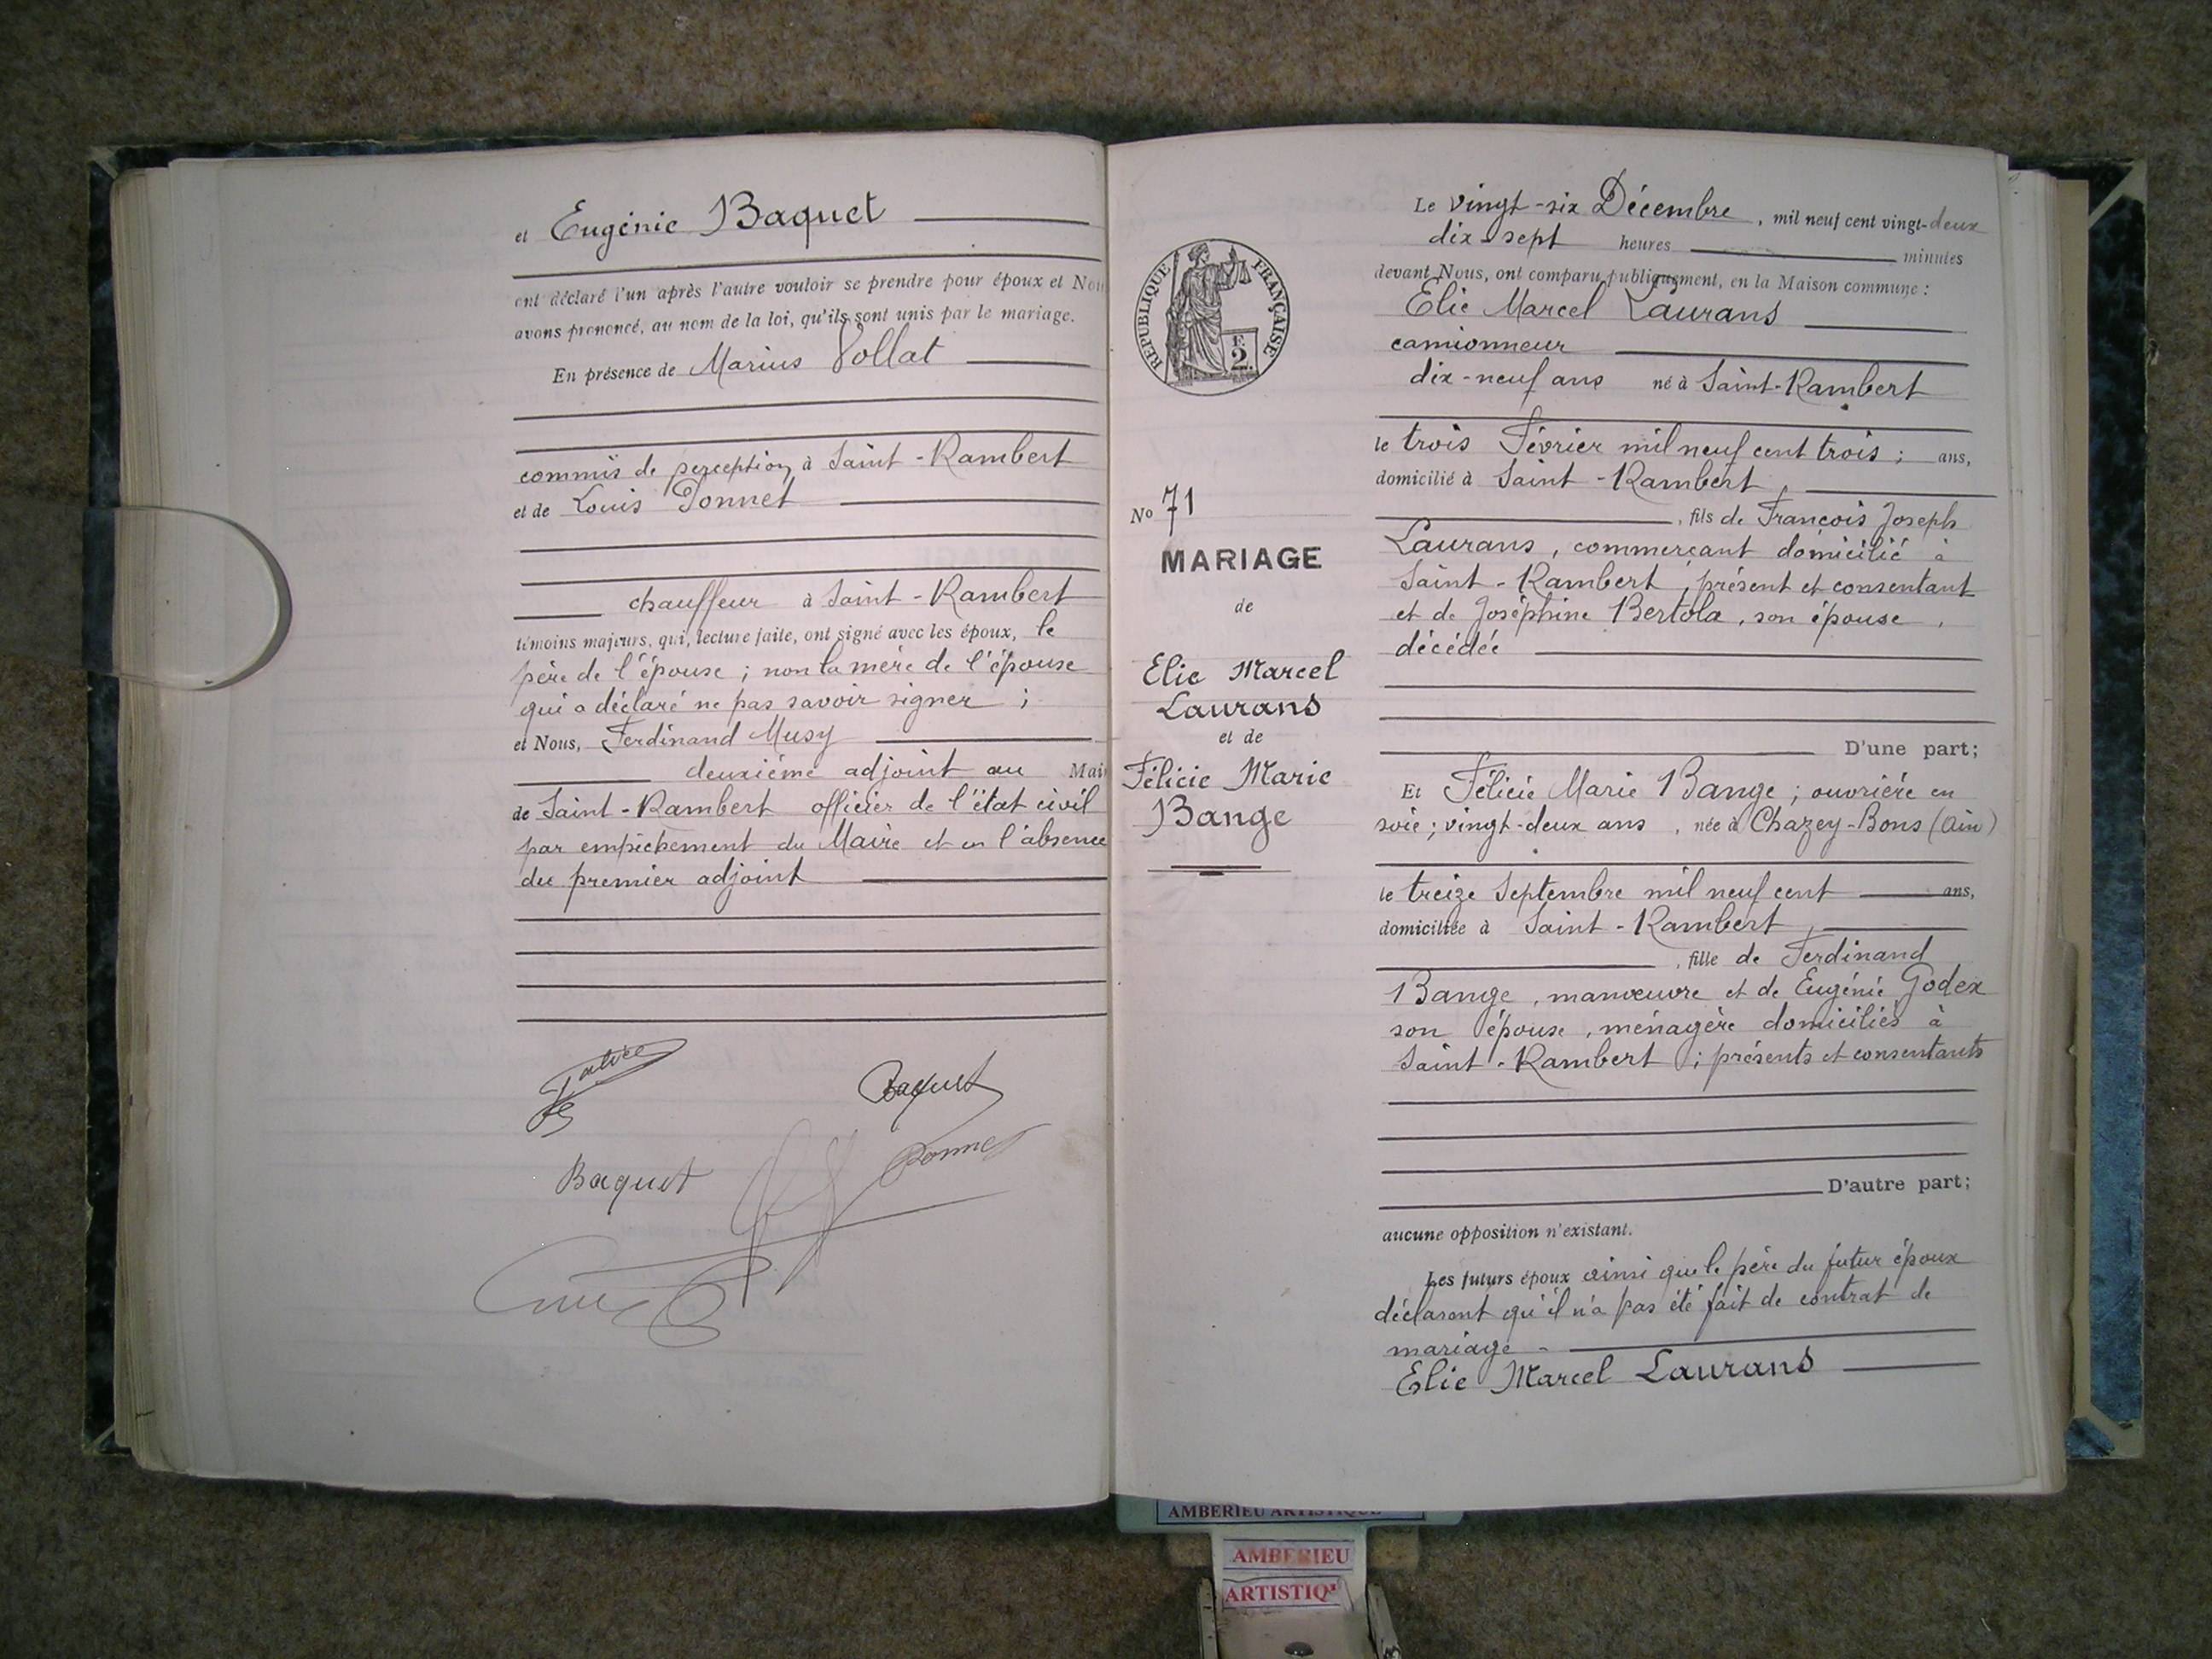 et Eugénie Baquet
ont déclaré l'un après l'autre vouloir se prendre pour époux et Nous
avons prononcé, au nom de la loi, qu'ils sont unis par le mariage.
En présence de Marius Vollat
commis de perception, à Saint-Rambert
et de Louis Donnet
chauffeur à Saint-Rambert
témoins majeurs, qui, lecture faite, ont signé avec les époux, le
père de l'épouse ; non la mère de l'épouse
qui a déclaré ne pas savoir signer ;
et Nous, Ferdinand Musy
deuxième adjoint au Mai
de Saint-Rambert officier de l'état civil
par empêchement du Maire et en l'absence
du premier adjoint
Baquet
Donnet
Baquet
RÉPUBLIQUE FRANÇAISE
F.
2.
No 71
MARIAGE
de
Elie Marcel
Laurans
et de
Félicie Marie
Bange
Le vingt-six Décembre, mil neuf cent vingt-deux
dix-sept heures minutes
devant Nous, ont comparu publiquement, en la Maison commune :
Elie Marcel Laurans
camionneur
dix-neuf ans né à Saint-Rambert
le trois Février mil neuf cent trois ; ans,
domicilié à Saint-Rambert,
, fils de François Joseph
Laurans, commerçant domicilié à
Saint-Rambert ; présent et consentant
et de Joséphine Bertola, son épouse,
décédée
D'une part;
Et Félicie Marie Bange ; ouvrière en
soie ; vingt-deux ans, née à Chazey-Bons (Ain)
le treize Septembre mil neuf cent ans,
domiciliée à Saint-Rambert,
, fille de Ferdinand
Bange, manœuvre et de Eugénie Godex
son épouse, ménagère domiciliés à
Saint-Rambert ; présents et consentants
D'autre part;
aucune opposition n'existant.
Les futurs époux ainsi que le père du futur époux
déclarent qu'il n'a pas été fait de contrat de
mariage -
Elie Marcel Laurans
AMBERIEU ARTISTIQUE
AMBERIEU
ARTISTIQ